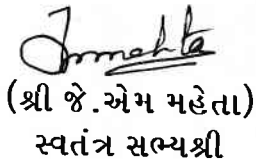 Jmmehta
(શ્રી જે.એમ મહેતા)
સ્વતંત્ર સભ્યશ્રી